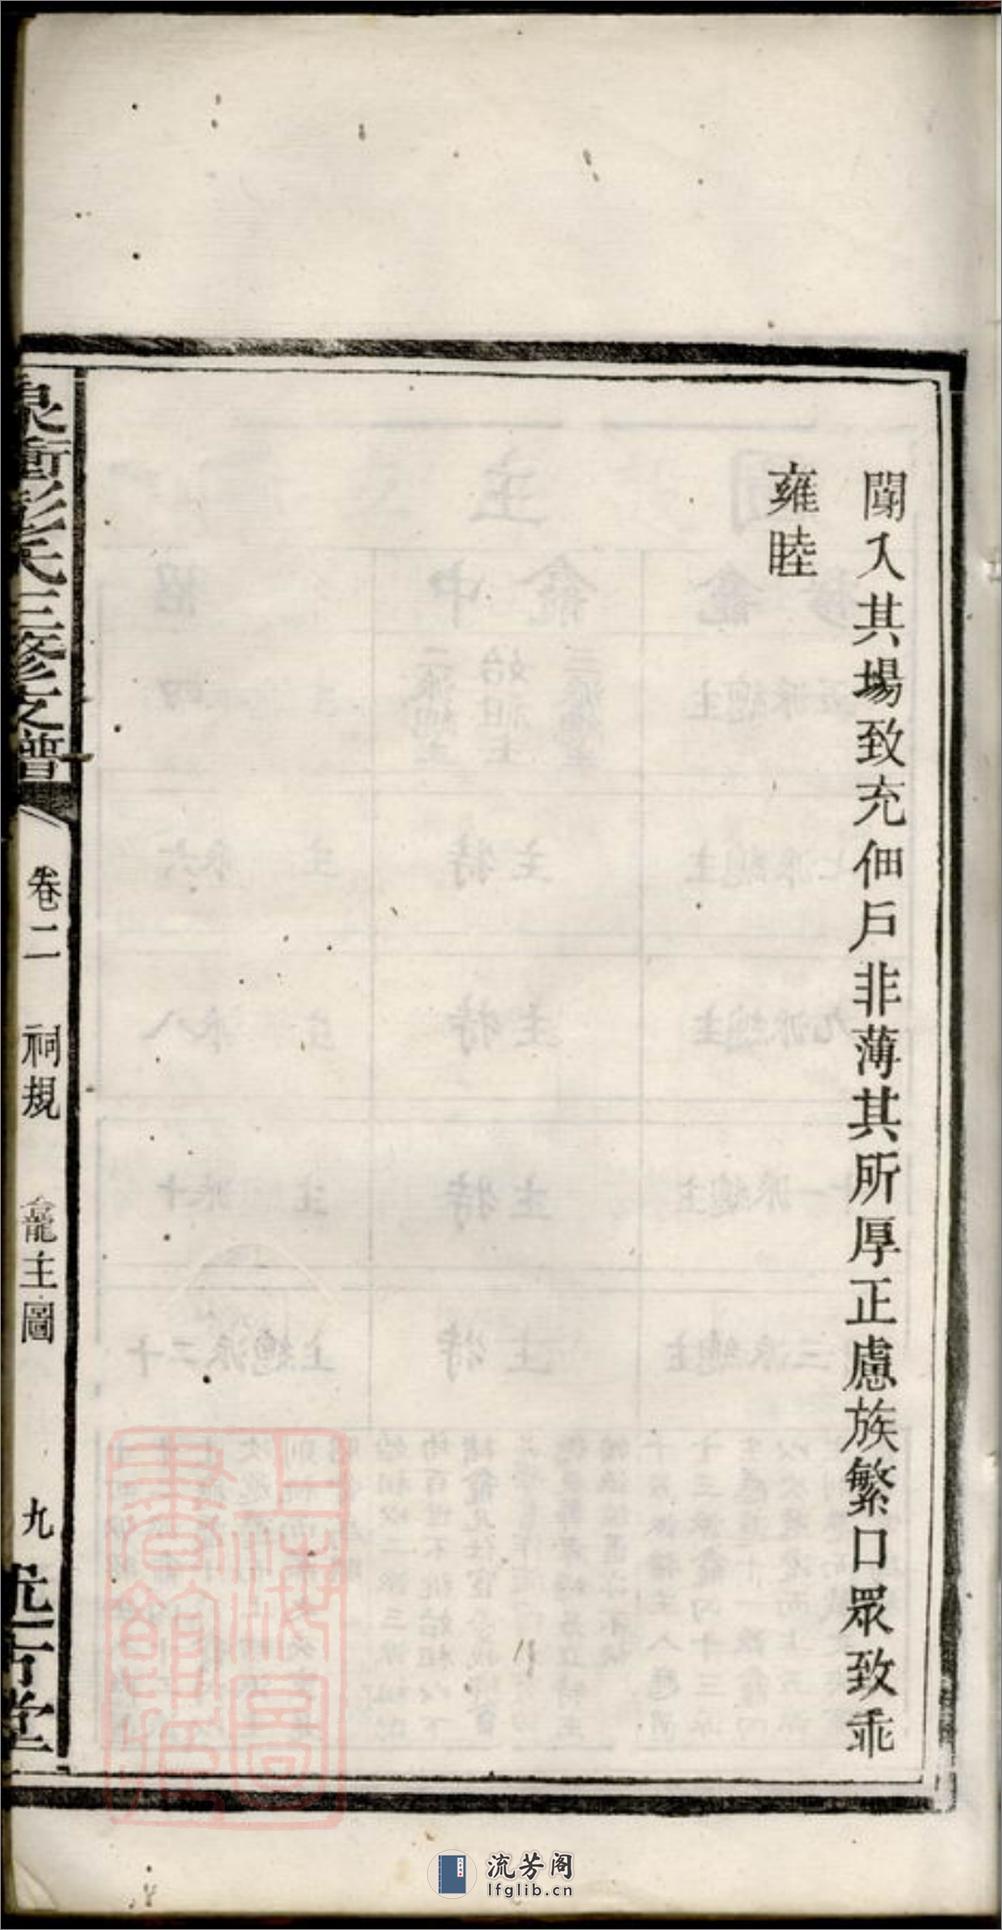 闈入其場致充佃戶非薄其所厚正慮族繁口眾致乖
雍睦
泉衝彭氏三修支譜
卷二 祠規 龕主圖
九 光古堂
上海圖書館藏
流芳阁
lfglib.cn